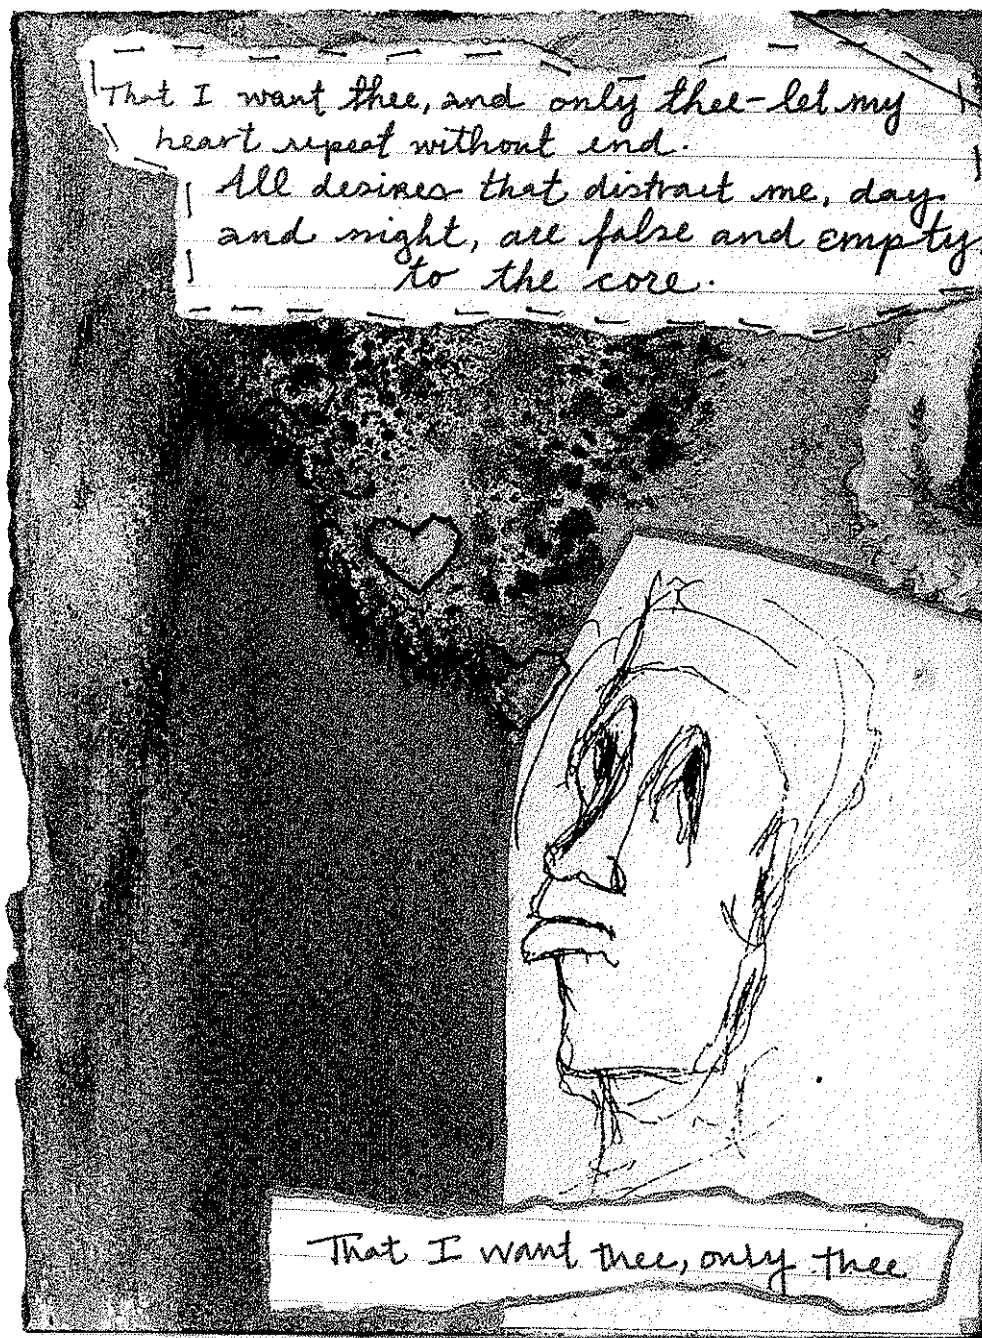 That I want thee, and only thee-let my
heart repeat without end.
All desires that distract me, day
and night, are false and empty
to the core.
That I want thee, only thee